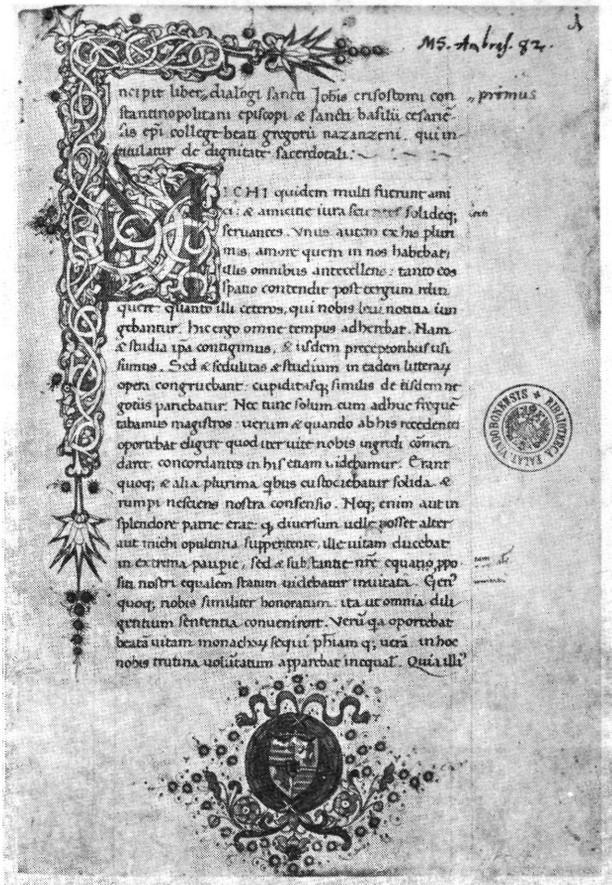 MS. Ambras. 82.
1
Incipit liber dialogi sancti Johis crisostomi con
primus
stantinopolitani episcopi & sancti basilii cesariē
sis epi college beati gregorii nazanzeni. qui in
titulatur de dignitate sacerdotali:
MICHI quidem multi fuerunt ami
ci: & amicitie iura solideq;
servantes. Vnus autem ex his pluri
mis, amore quem in nos habebat,
illis omnibus antecellens: tanto eos
spatio contendit post tergum relin
quere: quanto illi ceteros, qui nobis leui notitia iun
gebantur. hic ergo omne tempus adherebat. Nam
& studia ipa contigimus, & iisdem preceptoribus usi
sumus. Sed & sedulitas & studium in eadem litteraꝝ
opera congruebant: cupiditasq; similis de iisdem ne
gotiis pariebatur. Nec tunc solum cum adhuc frequē
tabamus magistros: uerum & quando ab his recedentes
oportebat eligere quod iter uite nobis ingredi cōmen
daret. concordantes in his etiam uidebamur. Erant
quoq; & alia plurima qbus custodiebatur solida. &
rumpi nesciens nostra consensio. Neq; enim aut in
splendore patrie erat: q diuersum uelle posset alter
aut michi opulentia suppetente, ille uitam ducebat
in extrema paupie, sed & substantie nrē equatio ppo
siti nostri equalem statum uidebatur inuitata. Gen⁹
quoq; nobis similiter honoratum: ita ut omnia dili
gentium sententia convenirent. Verū qa oportebat
beatā uitam monachoꝝ sequi phiam q; uerā in hoc
nobis trutina uolūtatum apparebat inequal. Quia illi⁹
BIBLIOTHECA PALAT. VINDOBONENSIS